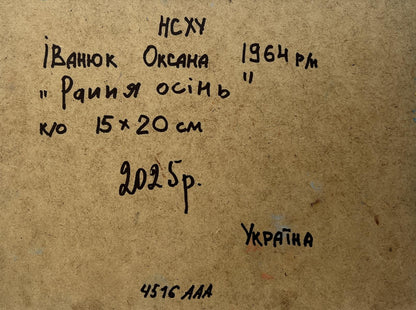 НСХУ
Іванюк Оксана 1964 р/н
„Рання осінь"
к/о 15×20 см
2025р.
Україна
4516 ААА